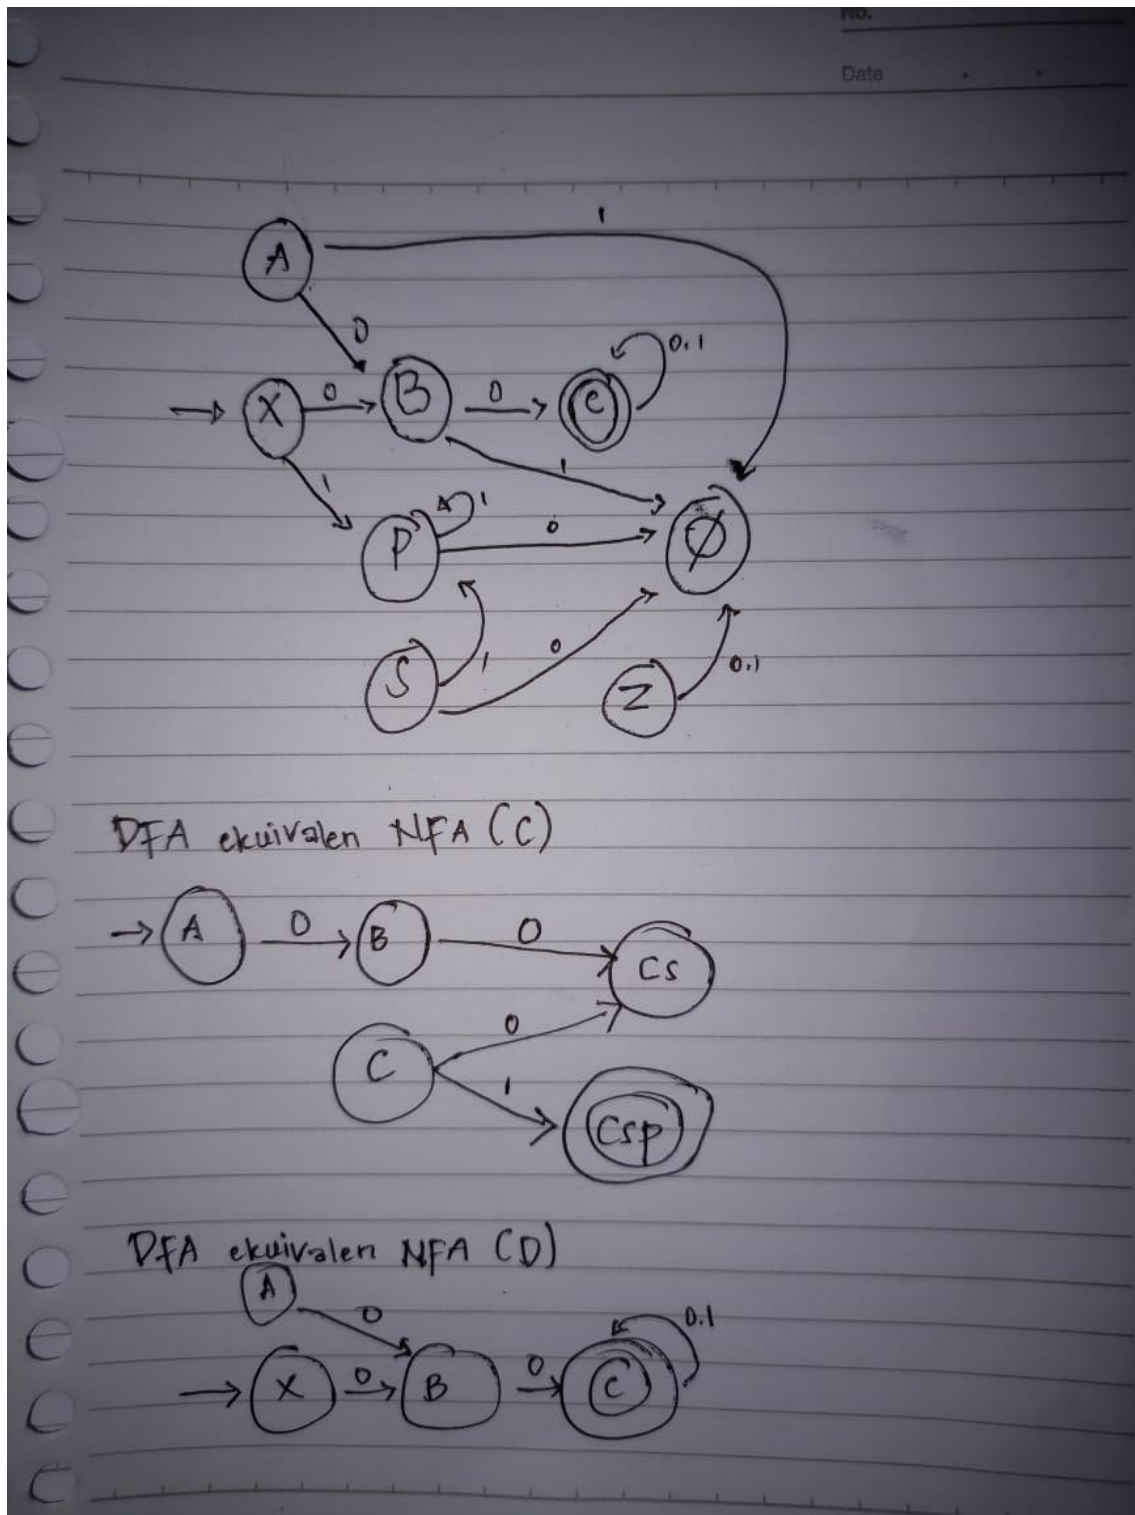 No.
Date
1
A
0
0.1
X
0
B
0
C
1
1
P
1
0
Ø
S
1
0
Z
0.1
DFA ekuivalen NFA (C)
A
0
B
0
CS
C
0
1
CSP
DFA ekuivalen NFA (D)
A
0
0.1
X
0
B
0
C